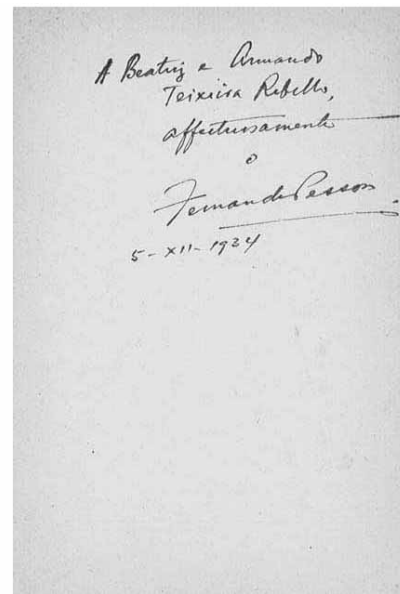 A Beatriz e Armando
Teixeira Rebello,
affectuosamente
o
Fernando Pessoa.
5-XII-1934